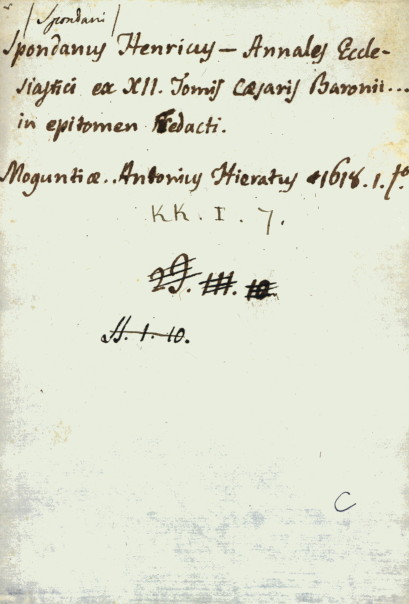 / Spondani /
Spondanus Henricus – Annales Eccle-
siastici ex XII. Tomis Cæsaris Baronii...
in epitomen redacti.
Moguntiæ.. Antonius Hieratus 1618. 1. fo
KK. I. 7.
III. 10
H. 1. 10.
C